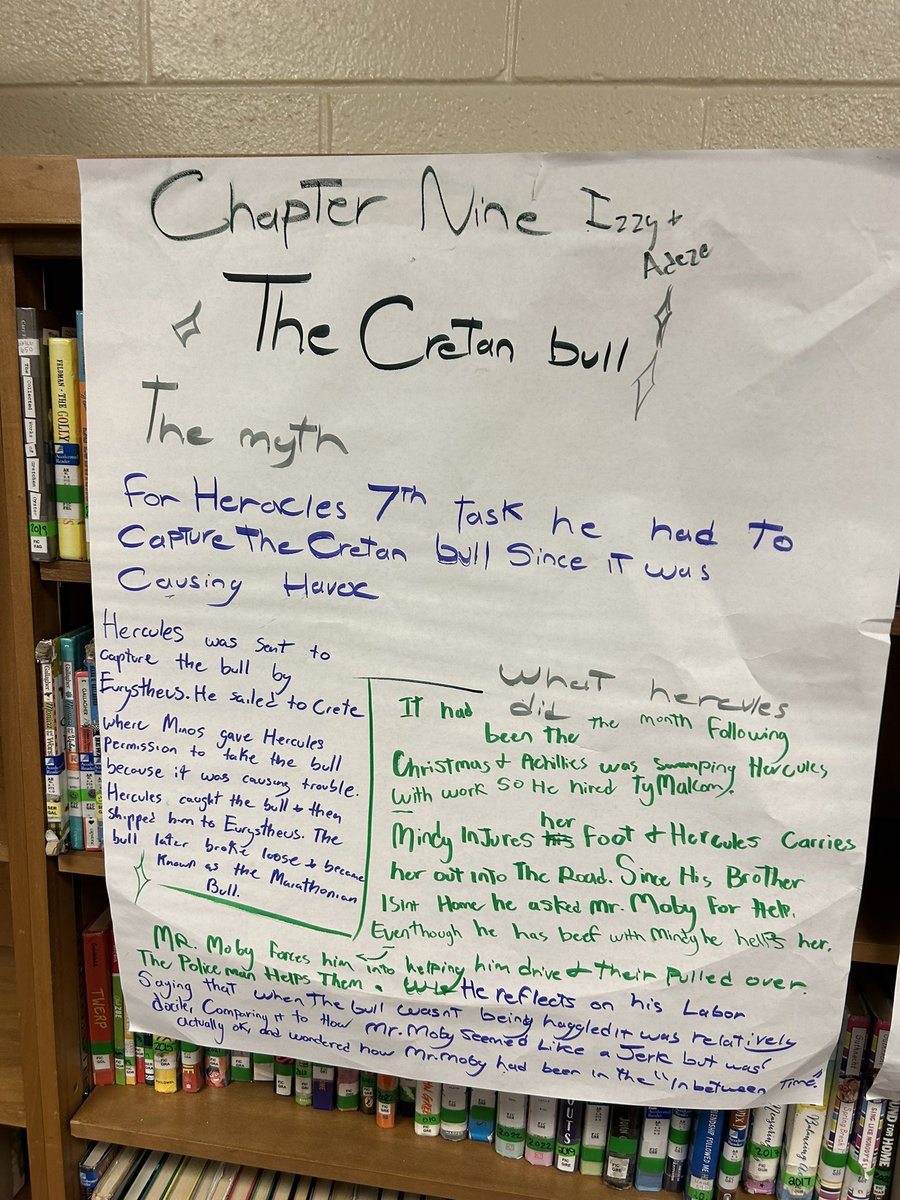 Chapter Nine Izzy +
Adeze
The Cretan bull
The myth
For Heracles 7th task he had to
Capture The Cretan bull Since it was
Causing Havoc
Hercules was sent to
capture the bull by
Eurystheus. He sailed to Crete
where Minos gave Hercules
permission to take the bull
because it was causing trouble.
Hercules caught the bull & then
shipped him to Eurystheus. The
bull later broke loose & became
known as the Marathonian
Bull.
What hercules
did
It had been the the month following
Christmas & Achillies was swamping Hercules
with work so He hired Ty Malcom.
Mindy Injures her Foot & Hercules Carries
her out into The Road. Since His Brother
Isint Home he asked Mr. Moby For Help.
Eventhough he has beef with Mindy he helps her.
MR. Moby Forces him into helping him drive & their pulled over.
The Police man Helps Them. He reflects on his Labor
Saying that when The bull wasnt being haggled it was relatively
docile, Comparing it to How Mr. Moby seemed Like a Jerk but was
actually ok, and wondered how Mr. moby had been in the "In between Time"
FELDMAN · THE GOLLY
The Collected Works of Gretchen Oyster
2019
TWERP
2022
2022
2019
2017